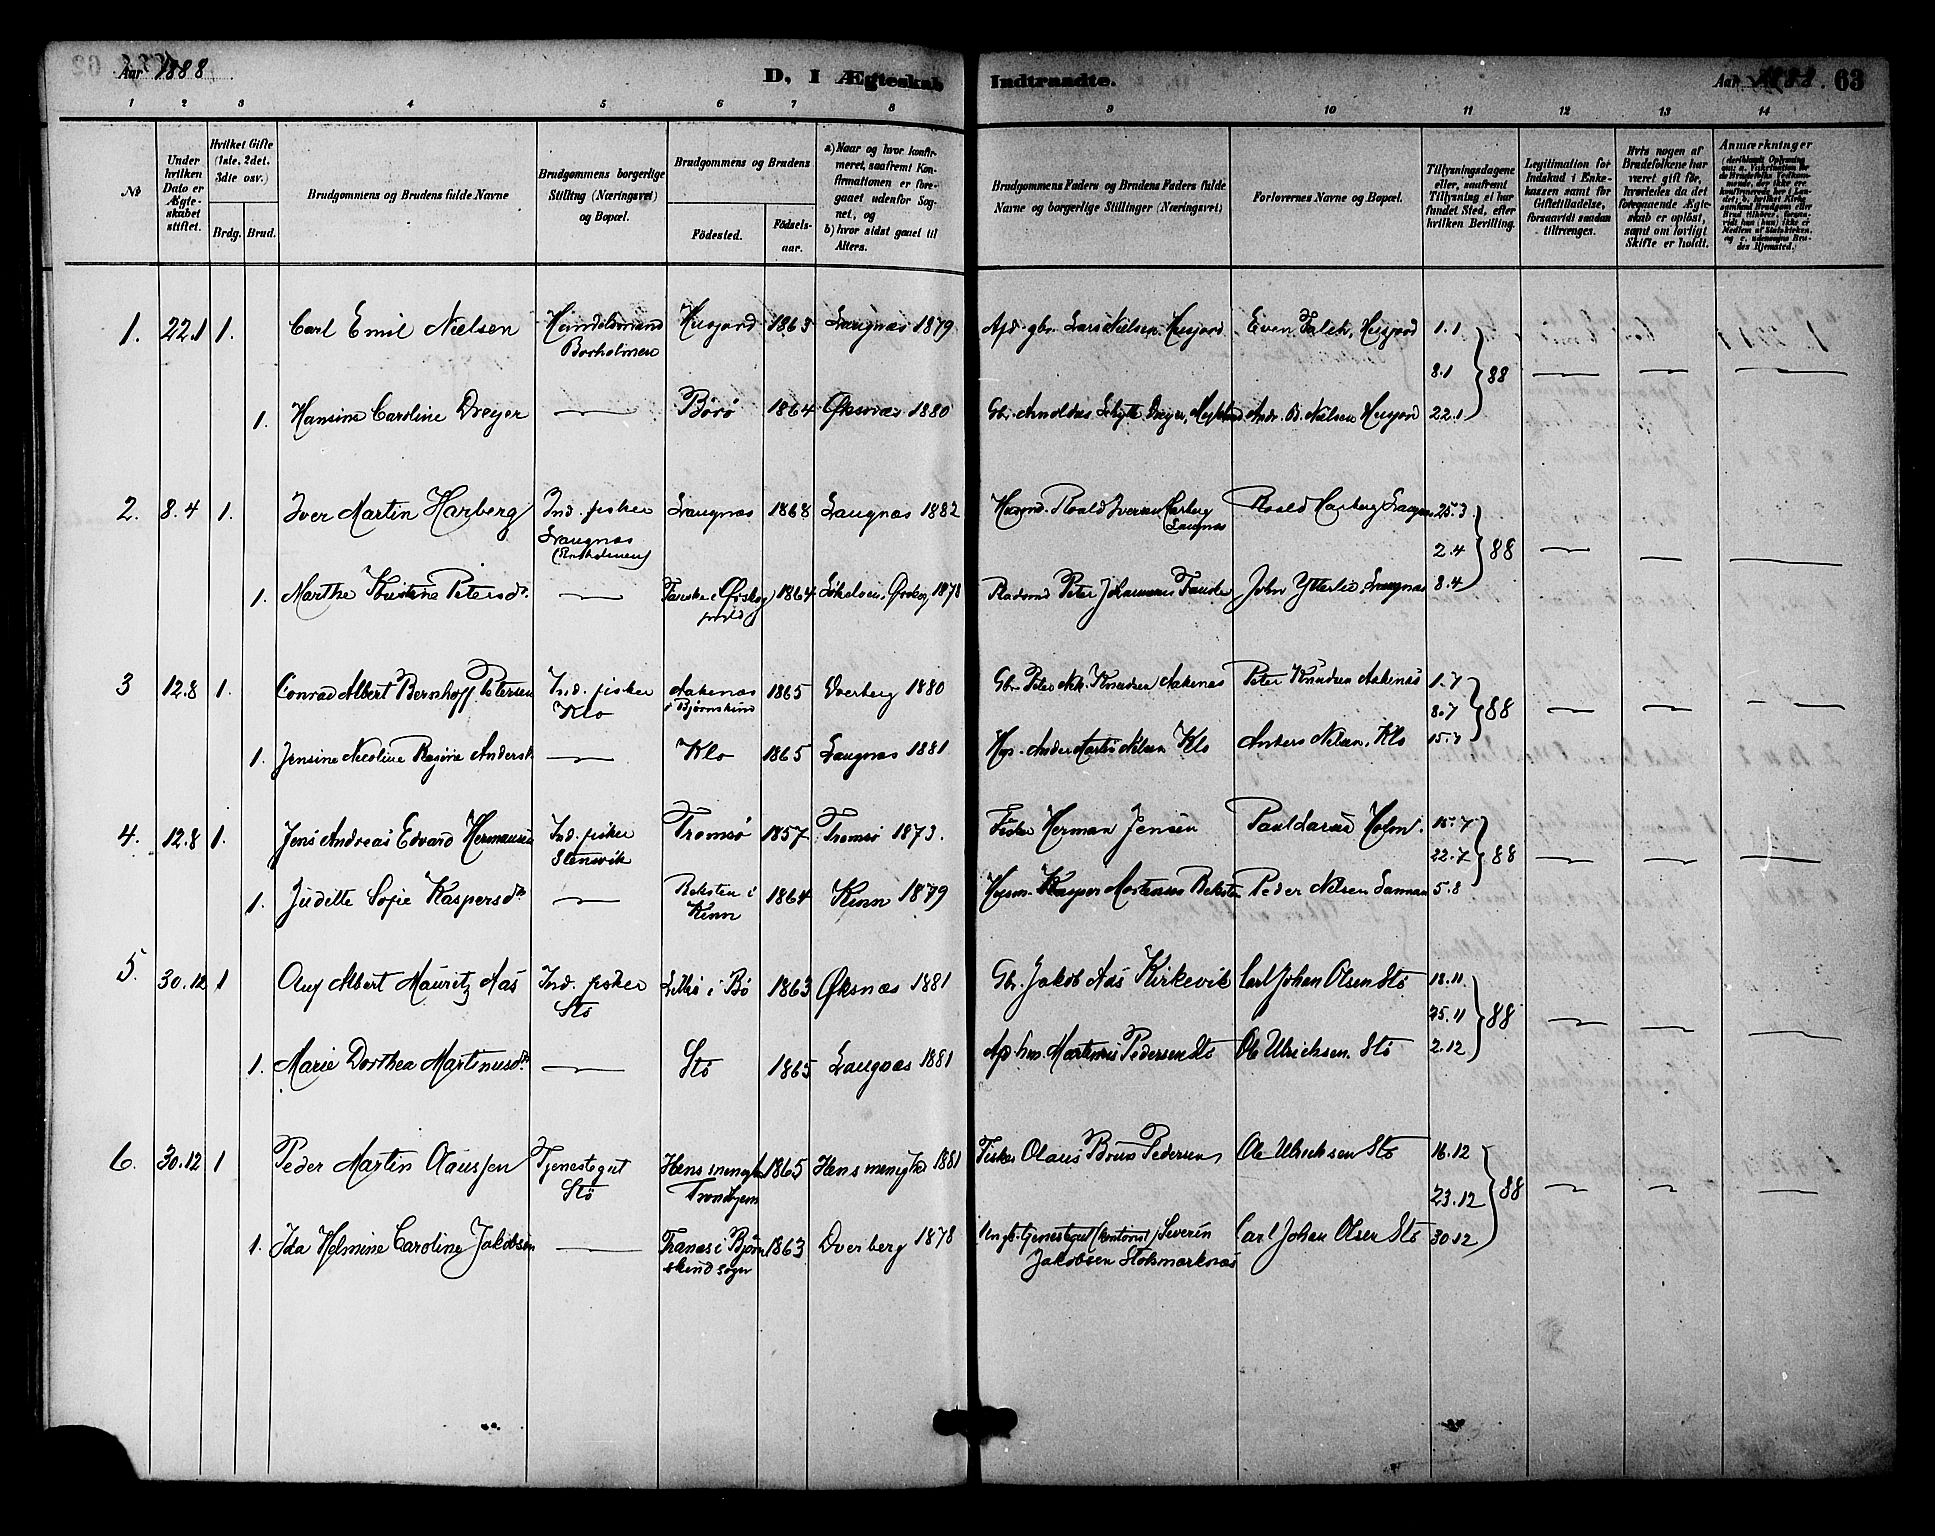 Aar 1888
D, I Ægteskab Indtraadte.
Aar 1888. 63
1 2 3 4 5 6 7 8 9 10 11 12 13 14
No
Under hvilken Dato er Ægteskabet stiftet.
Hvilket Gifte (1ste, 2det, 3die osv.)
Brdg. Brud.
Brudgommens og Brudens fulde Navne
Brudgommens borgerlige Stilling (Næringsvei) og Bopæl.
Brudgommens og Brudens
Fødested.
Fødselsaar.
a) Naar og hvor konfirmeret, saafremt Konfirmationen er foregaaet udenfor Sognet, og
b) hvor sidst gaaet til Alters.
Brudgommens Faders og Brudens Faders fulde Navne og borgerlige Stillinger (Næringsvei)
Forlovernes Navne og Bopæl.
Tillysningsdagene eller, saafremt Tillysning ei har fundet Sted, efter hvilken Bevilling.
Legitimation for Indskud i Enkekassen samt for Giftetilladelse, forsaavidt saadan tiltrænges.
Hvis nogen af Brudefolkene har været gift før, hvorledes da det foregaaende Ægteskab er opløst, samt om lovligt Skifte er holdt.
Anmærkninger
1. 22.1 1. Carl Emil Nielsen Handelsmand Husjord 1863 Langnæs 1879 Lars Nielsen, Husjord Even Falch, Husjord 1.1
8.1 } 88
1. Hansine Caroline Dreyer Börö 1864 Øksnæs 1880 Gbr. Arnoldus Schytte Dreyer, Andr. B. Nielsen Husjord 22.1
2. 8.4 1. Iver Martin Harberg Ind. fisker Langnæs 1868 Langnæs 1882 Husmd. Roald Iversen Harberg Roald Harberg 25.3
Langnæs Langnæs
2.4 } 88
1. Marthe Kristine Petersdr. 1864 1878 Peter Johannesen John Ytterlie, Langnæs 8.4
3 12.8 1. Conrad Albert Bernhoff Petersen Ind. fisker Aakenæs 1865 Dverberg 1880 Gbr. Peter Nik. Knudsen Aakenæs Peter Knudsen Aakenæs 1.7
Klo i Bjørnskind 8.7 } 88
1. Jensine Nicoline Regine Andersd. Klo 1865 Langnæs 1881 Anders Nilsen, Klo 15.7
4. 12.8 1. Jens Andreas Edvard Hermansen Ind. fisker Tromsø 1857 Tromsø 1873. Fisker Herman Jensen Holm. 15.7
Stensvik 22.7 } 88
1. Judette Sofie Kaspersdr. Reksten i 1864 Kinn 1879 Husm. Kasper Mortensen Reksten Peder Nilsen 5.8
Kinn
5. 30.12 1 Albert Mauritz Aas Ind. fisker i Bø 1863 Øksnæs 1881 Gbr. Jakob Aas Kirkevik Carl Johan Olsen Stö 18.11.
Stö 25.11 } 88
1. Marie Dorthea Martinusdr. Stö 1865 Langnæs 1881 Martinus Pedersen Stö Ole Ulrichsen. Stö 2.12
6. 30.12 1 Peder Martin Olaussen Tjenestegut 1865 1881 Fisker Olaus Pedersen, Ole Ulrichsen Stö 16.12
Stö Trondhjem 23.12 } 88
1. Ida Helmine Caroline Jakobsen i Bjørn 1863 Dverberg 1878 Severin Carl Johan Olsen Stö 30.12
skind sogn Jakobsen Stokmarknæs